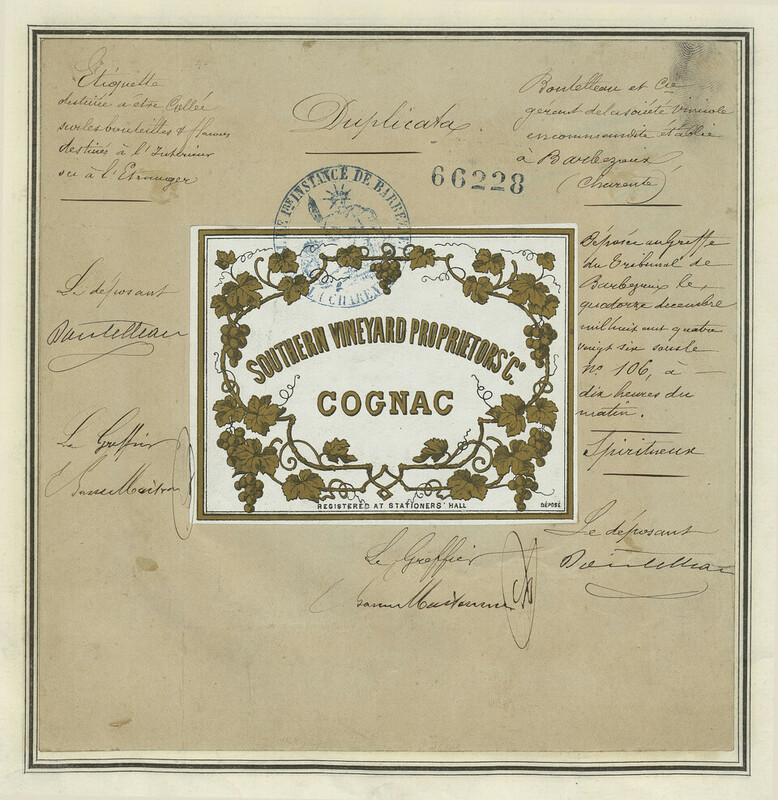 Etiquette
destinée à être Collée
sur les bouteilles & flacons
destinés à l'Intérieur
ou à l'Etranger
Duplicata.
Boutelleau et Cie
gérant de la société vinicole
en commandite établie
à Barbezieux
(Charente)
66228
1re INSTANCE DE BARBEZ
LA CHAREN
Le déposant
Boutelleau
Le Greffier
SOUTHERN VINEYARD PROPRIETORS' Co.
COGNAC
REGISTERED AT STATIONERS' HALL
DÉPOSÉ
Déposée au Greffe
du Tribunal de
Barbezieux le,
quatorze décembre
mil huit cent quatre
vingt six sous le
no. 106, à —
dix heures du
matin.
Spiritueux
Le déposant
Boutelleau
Le Greffier